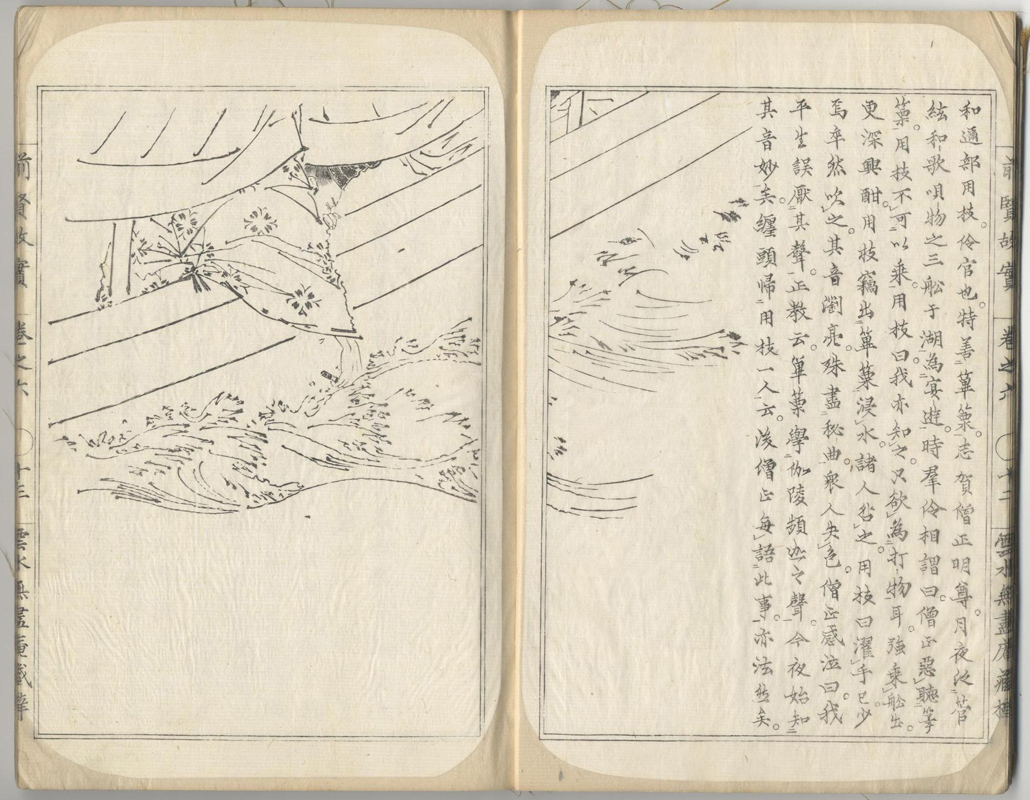 前賢故實 卷之六 〇十二 雲水無盡庵藏
和邇部用枝。伶官也。特善篳篥。志賀僧正明尊。月夜泛管
絃和歌唄物之三舩于湖。為宴遊。時羣伶相謂曰。僧正惡聽篳
篥。用枝不可以乘。用枝曰我亦知之。只欲為打物耳。強乘舩出。
更深興酣。用枝竊出篳篥浸水。諸人咎之。用枝曰濯手已。少
焉卒然吹之。其音瀏亮。殊盡秘曲。衆人失色。僧正感泣曰。我
平生誤厭其聲。正教云。篳篥學伽陵頻迦之聲。今夜始知
其音妙矣。纏頭歸用枝一人云。後僧正每語此事。亦泫然矣。
前賢故實 卷之六 〇十三 雲水無盡庵藏